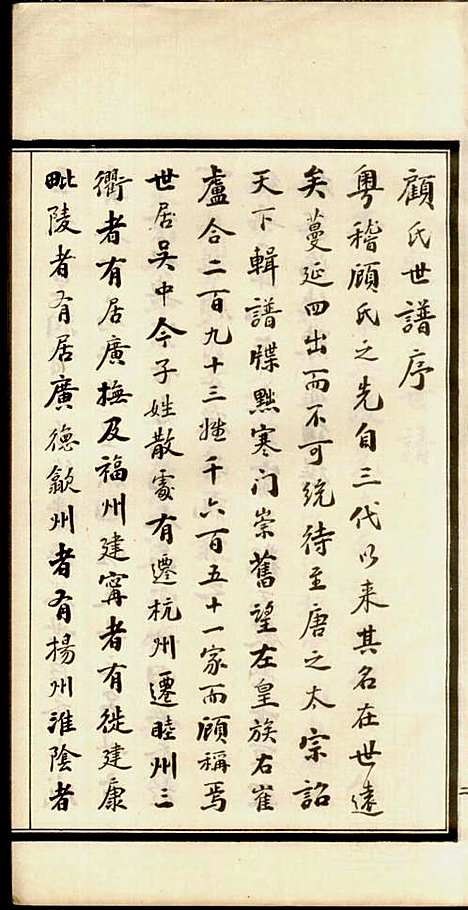 顧氏世譜序
粵稽顧氏之先自三代以来其名在世遠
矣蔓延四出而不可统待至唐之太宗詔
天下輯譜牒黜寒门崇舊望左皇族右崔
盧合二百九十三姓千六百五十一家而顧稱焉
世居吳中今子姓散處有遷杭州遷睦州三
衢者有居廣撫及福州建寧者有徙建康
毗陵者有居廣德歙州者有揚州淮陰者
二